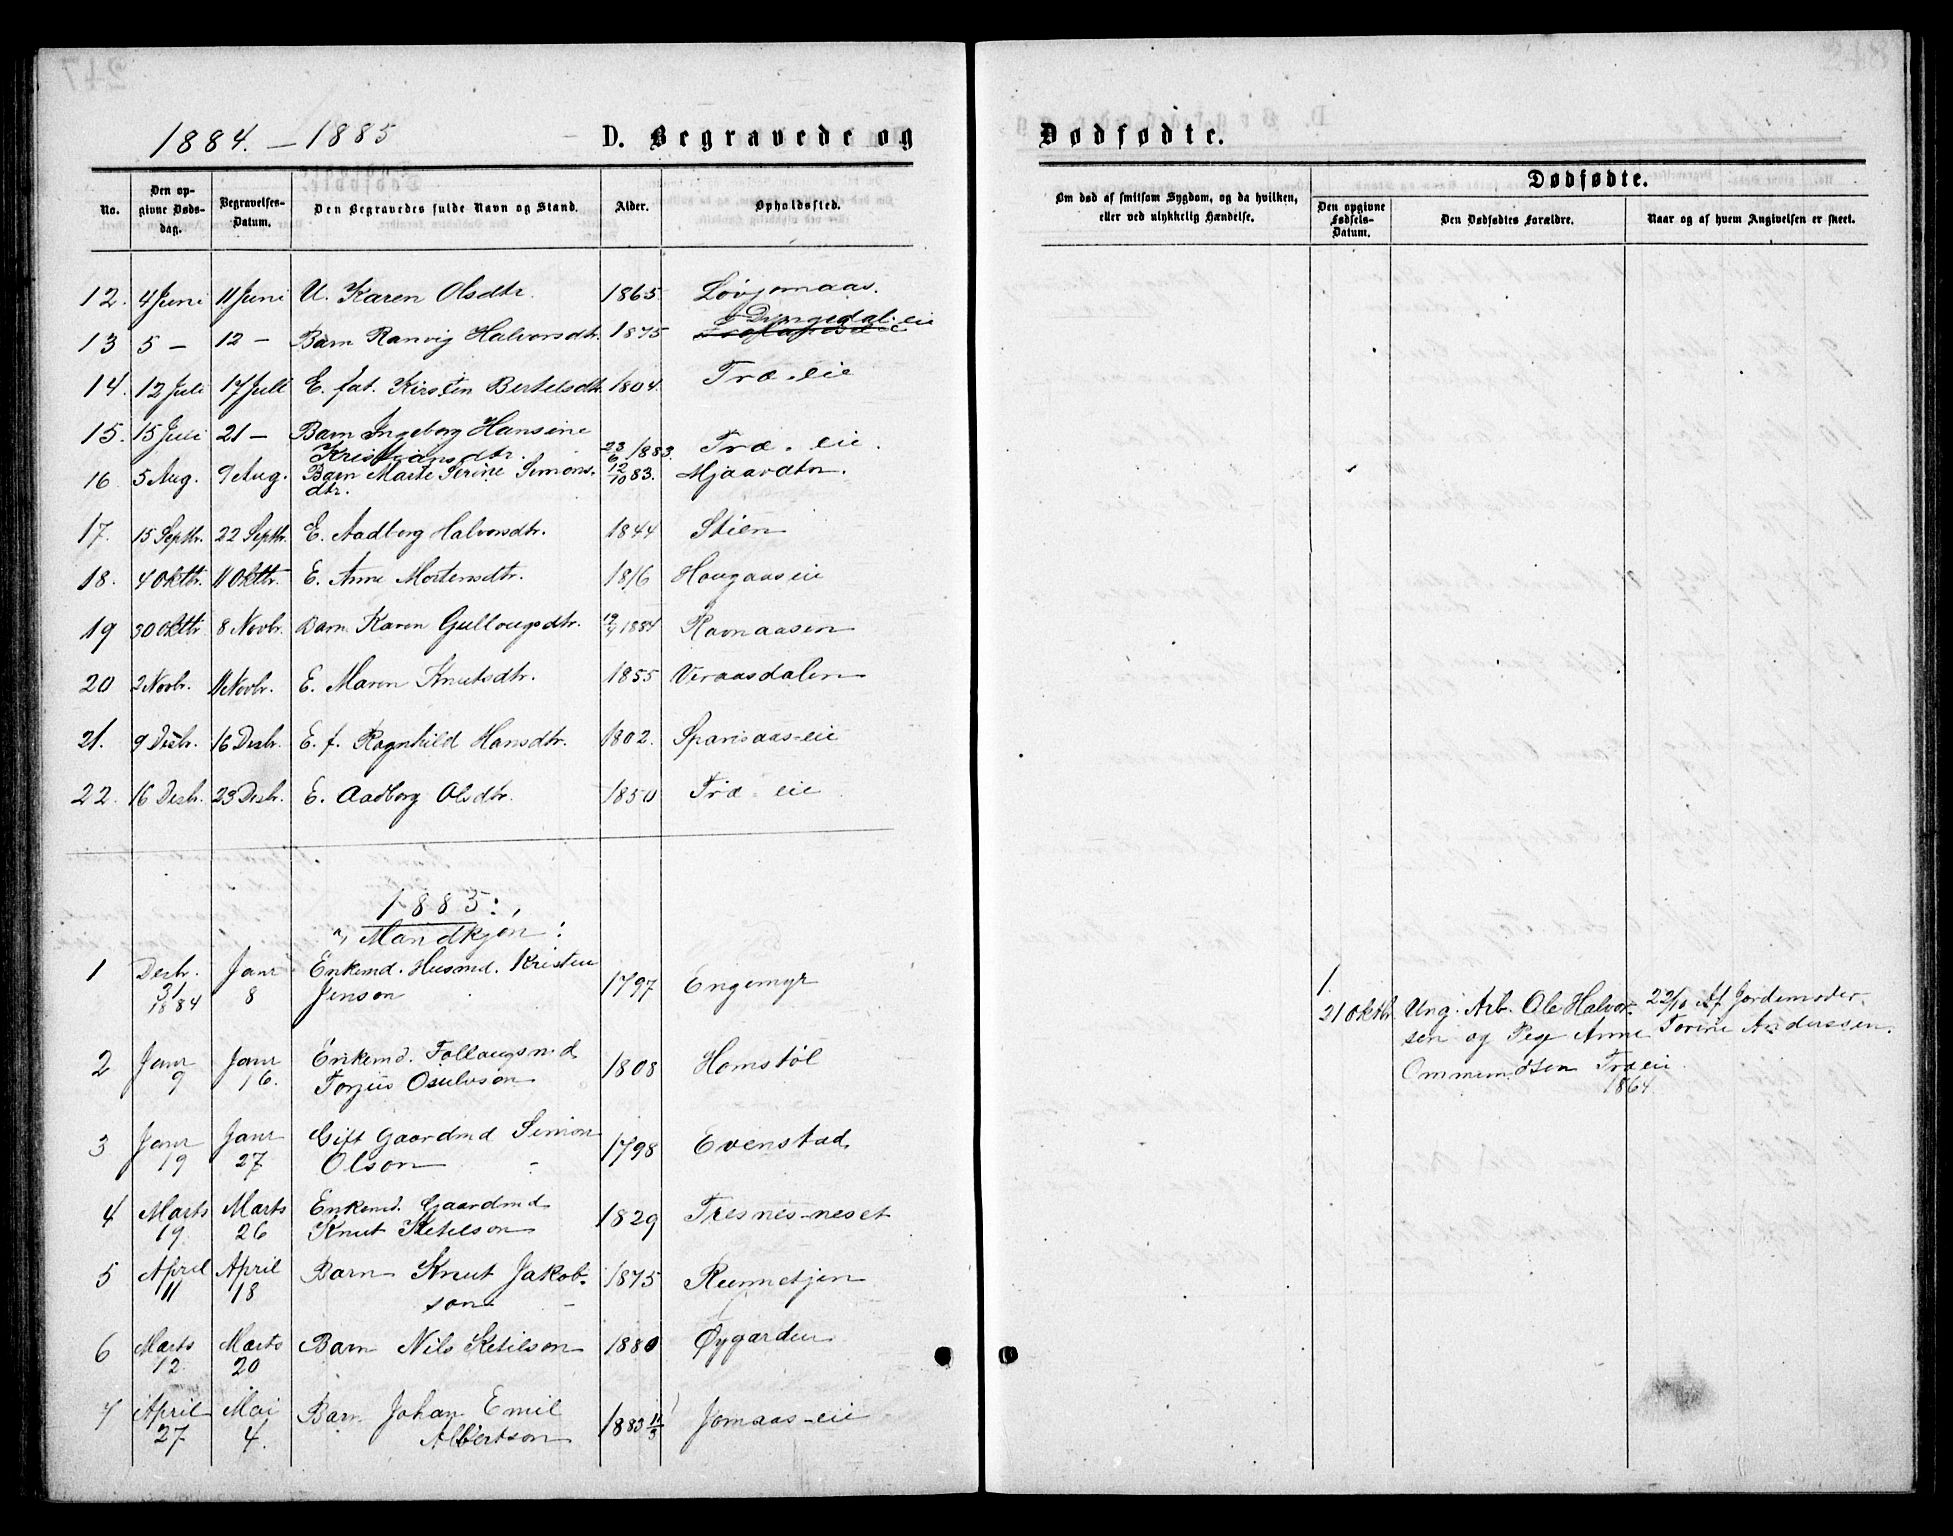 1884. – 1885
D. Begravede og Dødfødte.
No.
Den opgivne Dødsdag.
Begravelses-Datum.
Den Begravedes fulde Navn og Stand.
Alder.
Opholdssted.
Om død af smitsom Sygdom, og da hvilken,
eller ved ulykkelig Hændelse.
Dødfødte.
Den opgivne Fødsels-Datum.
Den Dødfødtes Forældre.
Naar og af hvem Angivelsen er skeet.
12. 4 Juni 11 Juni U. Karen Olsdtr. 1865. Løvjomaas.
13 5 – 12 – Barn Ranvig Halvorsdtr. 1875 Dyngedal. eie
14. 12 Juli 17 Juli E. fat. Kirsten Bertelsdtr. 1804. Træ-eie
15. 15 Juli 21 – Barn Ingeborg Hansine
Kristiansdtr. 23/6 1883. Træ-eie.
16 5 Aug. 9 Aug. Barn Marte Serine Simons-
dtr. 12/10 83. Mjaavatn.
17. 15 Septbr. 22 Septbr. E. Aadborg Halvorsdtr. 1844 Stien
18. 4 Oktbr. 11 Oktbr. E. Anne Mortensdtr. 1816 Haugaaseie
19 30 Oktbr 8 Novbr. Barn Karen Gullaugsdtr. 1884 Ravnaasen
20 2 Novbr. 11 Novbr. E. Maren Knutsdtr. 1855 Veraasdalen
21. 9 Desbr. 16 Desbr. E. f. Ragnhild Hansdtr. 1802. Sparsaas-eie
22. 16 Desbr. 23 Desbr. E. Aadborg Olsdtr. 1850 Træ-eie
1885:
Mandkjøn:
1 Desbr. 31 1884 Janr 8 Enkemd. Husmd. Kristen
Jenson 1797 Engemyr
2 Janr 9 Janr 16. Enkemd. Follaugsmd
Torjus Osulvson 1808 Homstøl
3 Janr 19 Janr 27 Gift Gaardmd Simon
Olson 1798 Evenstad
4 Marts 19 Marts 26 Enkemd. Gaardmd
Knut Ketilson 1829 Tresnes-neset
5 April 11 April 18 Barn Knut Jakob-
son 1875 Runnetjen
6 Marts 12 Marts 20 Barn Nils Ketilson 1880 Øygarden
7 April 27 Mai 4. Barn Johan Emil
Albertson 1883 11/3 Jomaas-eie
1.
21 Oktbr Ung. Arb. Ole Halvor-
sen og Pige Anne
Ommundsen Træeie
1864.
22/10 Af Jordemoder
Torine Anderssen.